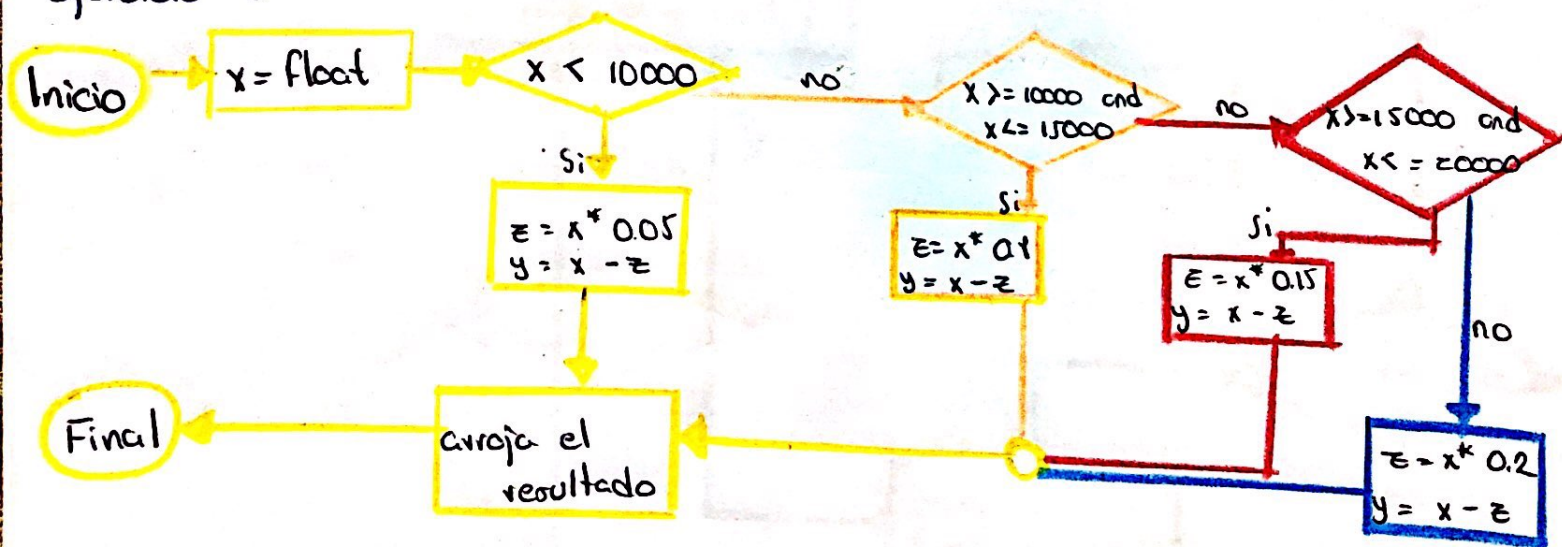 Inicio
x = float
x < 10000
no
x >= 10000 and
x <= 15000
no
x >= 15000 and
x < = 20000
Si
z = x * 0.05
y = x - z
Si
z = x * 0.1
y = x - z
Si
z = x * 0.15
y = x - z
no
z = x * 0.2
y = x - z
arroja el
resultado
Final